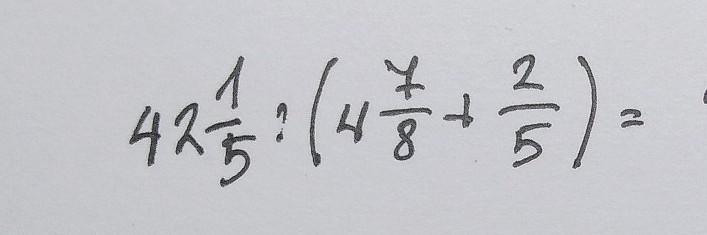 42 1/5 : (4 7/8 + 2/5) =